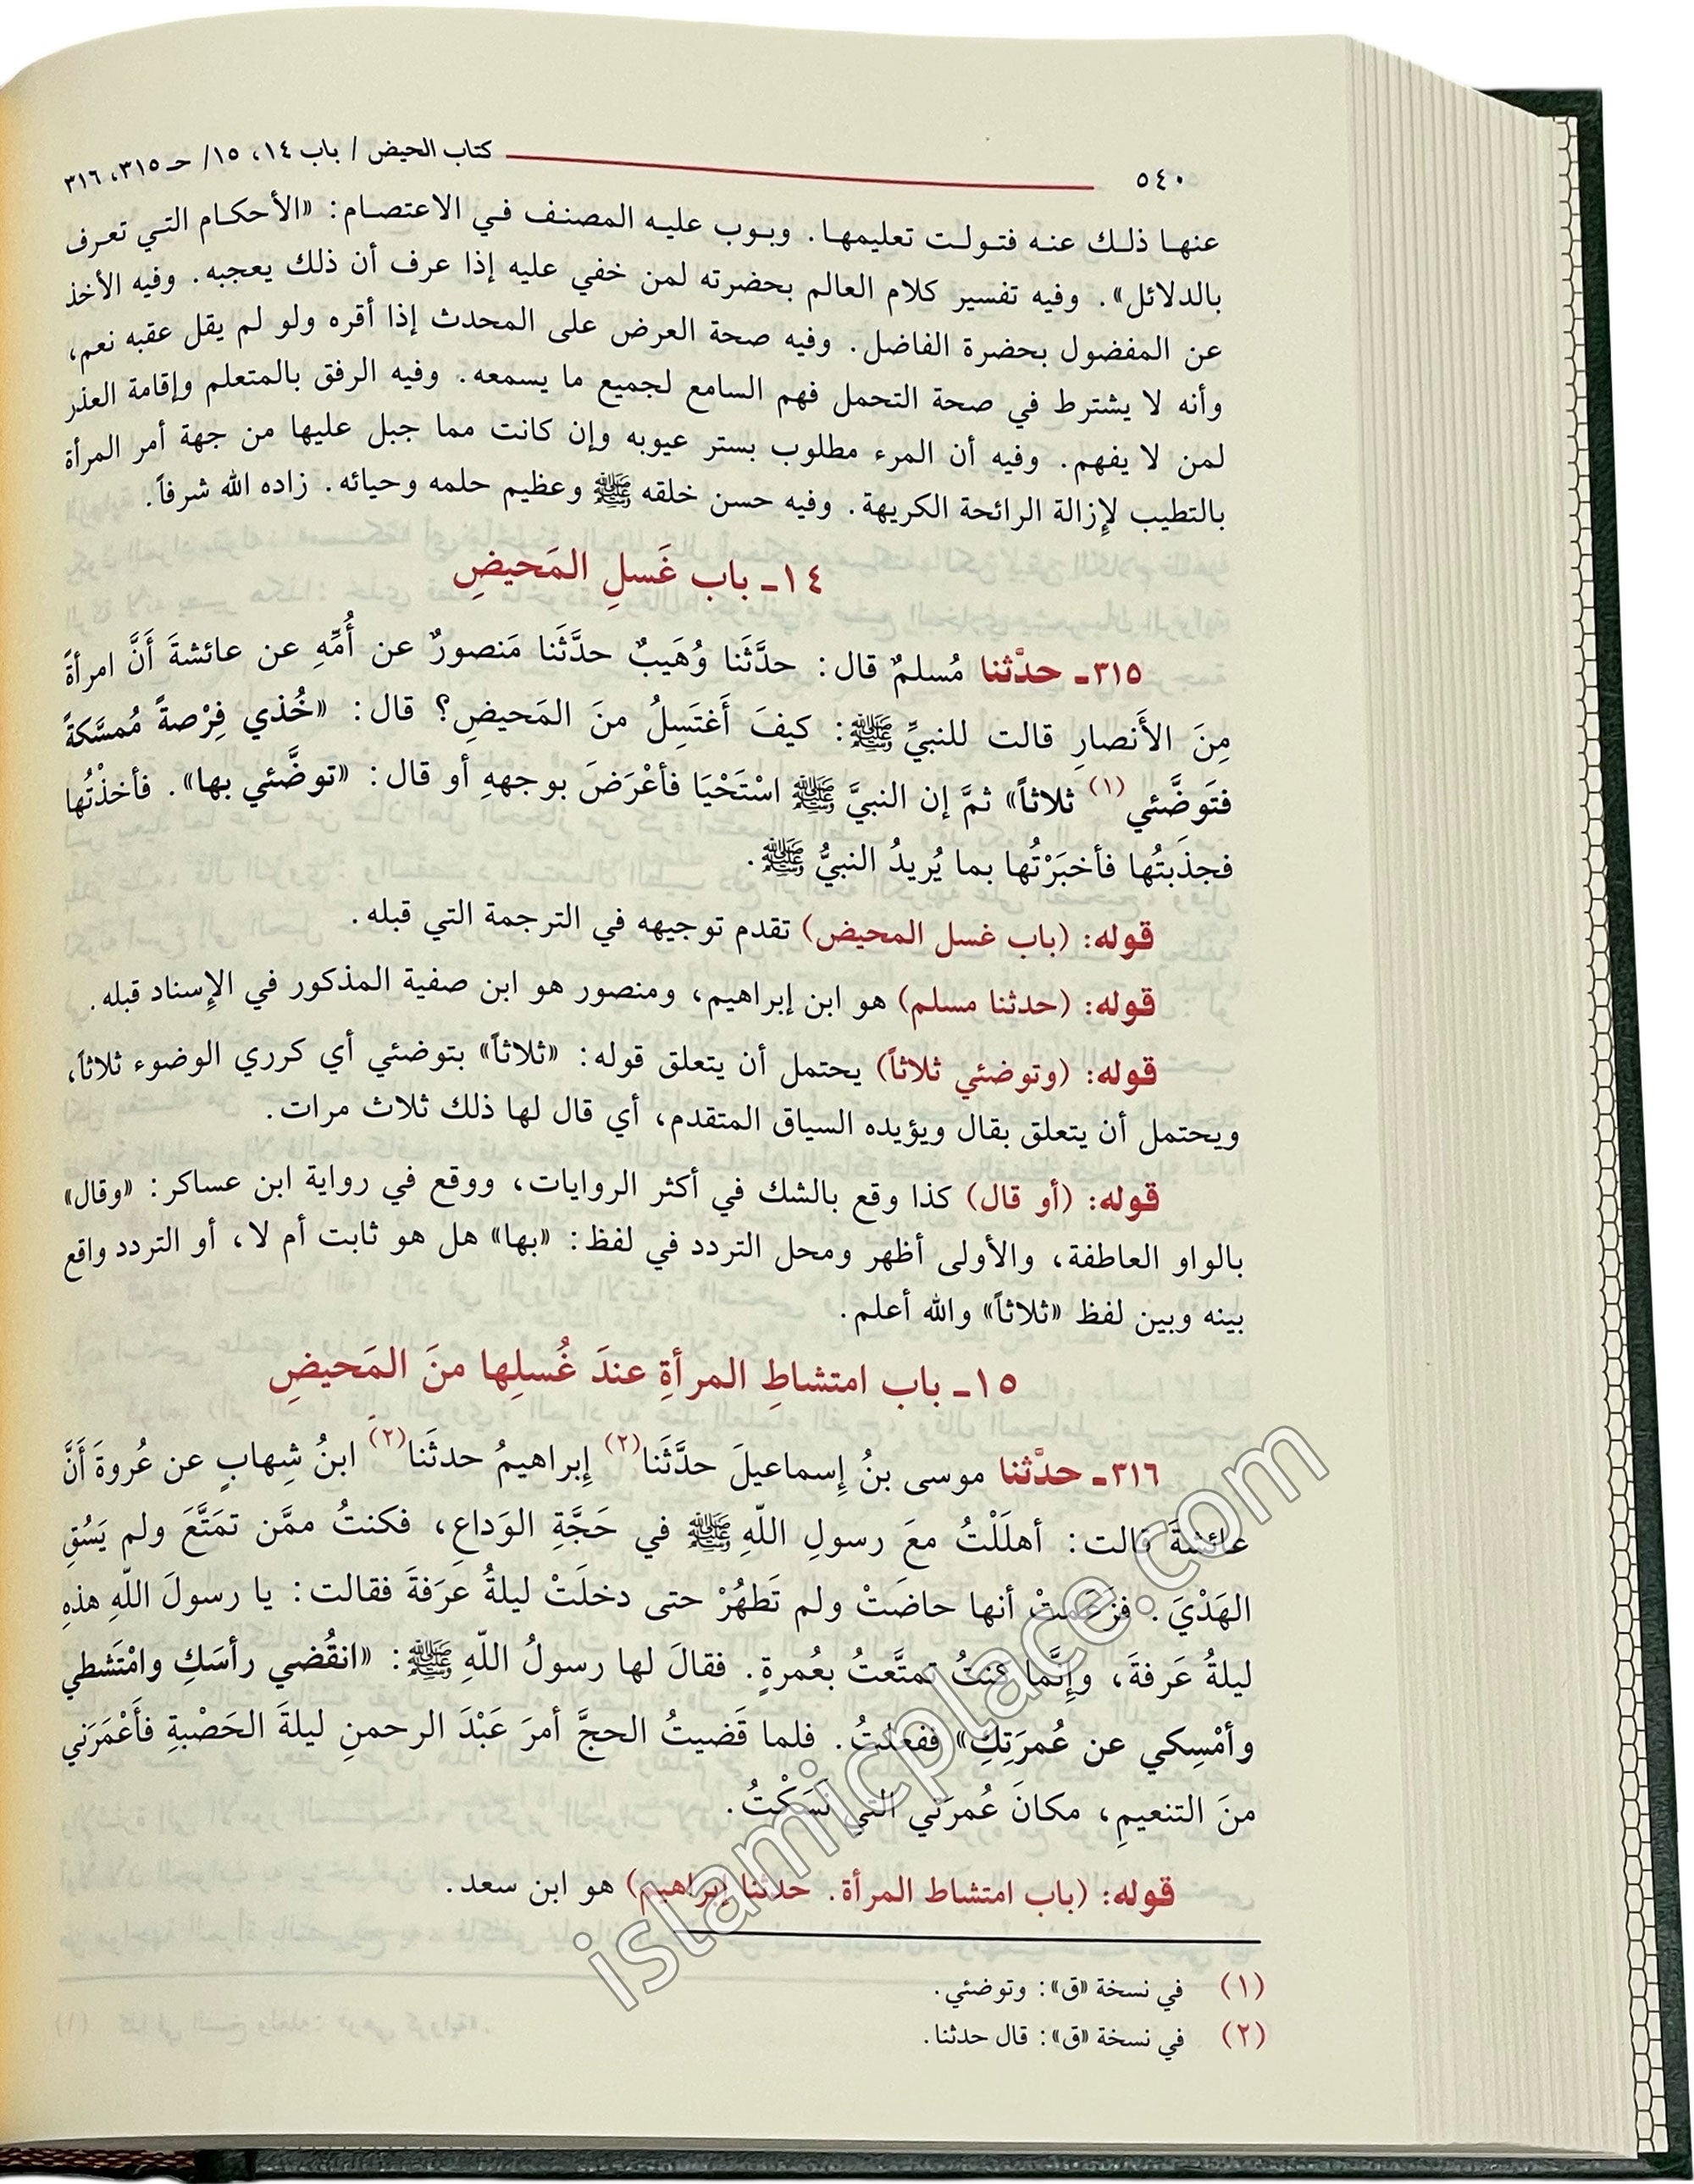 ٥٤٠ كتاب الحيض / باب ١٤، ١٥/ حـ ٣١٥، ٣١٦
عنهـا ذلـك عنـه فتـولـت تعليمهـا. وبـوب عليـه المصنـف فـي الاعتصـام: «الأحكـام التـي تعـرف
بالدلائل». وفيه تفسير كلام العالم بحضرته لمن خفي عليه إذا عرف أن ذلك يعجبه. وفيه الأخذ
عن المفضول بحضرة الفاضل. وفيه صحة العرض على المحدث إذا أقره ولو لم يقل عقبه نعم،
وأنه لا يشترط في صحة التحمل فهم السامع لجميع ما يسمعه. وفيه الرفق بالمتعلم وإقامة العذر
لمن لا يفهم. وفيه أن المرء مطلوب بستر عيوبه وإن كانت مما جبل عليها من جهة أمر المرأة
بالتطيب لإزالة الرائحة الكريهة. وفيه حسن خلقه ﷺ وعظيم حلمه وحيائه. زاده الله شرفاً.
١٤ـ باب غَسلِ المَحيضِ
٣١٥ـ حدَّثنا مُسلمٌ قال: حدَّثَنا وُهَيبٌ حدَّثَنا مَنصورٌ عن أُمِّهِ عن عائشةَ أَنَّ امرأةً
مِنَ الأَنصارِ قالت للنبيِّ ﷺ: كيفَ أَغتَسِلُ منَ المَحيضِ؟ قال: «خُذي فِرْصةً مُمسَّكةً
فتَوضَّئي(١) ثلاثاً» ثمَّ إن النبيَّ ﷺ اسْتَحْيَا فأعْرَضَ بوجههِ أو قال: «توضَّئي بها». فأخذْتُها
فجذَبتُها فأخبَرْتُها بما يُريدُ النبيُّ ﷺ.
قوله: (باب غسل المحيض) تقدم توجيهه في الترجمة التي قبله.
قوله: (حدثنا مسلم) هو ابن إبراهيم، ومنصور هو ابن صفية المذكور في الإسناد قبله.
قوله: (وتوضئي ثلاثاً) يحتمل أن يتعلق قوله: «ثلاثاً» بتوضئي أي كرري الوضوء ثلاثاً،
ويحتمل أن يتعلق بقال ويؤيده السياق المتقدم، أي قال لها ذلك ثلاث مرات.
قوله: (أو قال) كذا وقع بالشك في أكثر الروايات، ووقع في رواية ابن عساكر: «وقال»
بالواو العاطفة، والأولى أظهر ومحل التردد في لفظ: «بها» هل هو ثابت أم لا، أو التردد واقع
بينه وبين لفظ «ثلاثاً» والله أعلم.
١٥ـ باب امتشاطِ المرأةِ عندَ غُسلِها منَ المَحيضِ
٣١٦ـ حدَّثنا موسى بنُ إسماعيلَ حدَّثَنا(٢) إبراهيمُ حدثَنا(٢) ابنُ شِهابٍ عن عُروةَ أَنَّ
عائشةَ قالت: أهلَلْتُ معَ رسولِ اللّهِ ﷺ في حَجَّةِ الوَداعِ، فكنتُ ممَّن تمَتَّعَ ولم يَسُقِ
الهَدْيَ. فزَعَمتْ أنها حاضَتْ ولم تَطهُرْ حتى دخلَتْ ليلةُ عَرَفةَ فقالت: يا رسولَ اللّهِ هذهِ
ليلةُ عَرفةَ، وإنَّما كنتُ تمتَّعتُ بعُمرةٍ. فقالَ لها رسولُ اللّهِ ﷺ: «انقُضي رأسَكِ وامْتَشطي
وأمْسِكي عن عُمرَتِكِ» ففعلتُ. فلما قَضيتُ الحجَّ أمرَ عَبْدَ الرحمنِ ليلةَ الحَصْبةِ فأَعْمَرَني
منَ التنعيمِ، مكانَ عُمرَتي التي نَسَكْتُ.
قوله: (باب امتشاط المرأة. حدثنا إبراهيم) هو ابن سعد.
(١) في نسخة «ق»: وتوضئي.
(٢) في نسخة «ق»: قال حدثنا.
islamicplace.com